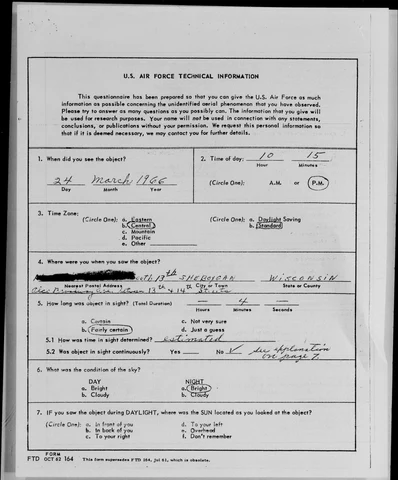 U.S. AIR FORCE TECHNICAL INFORMATION
This questionnaire has been prepared so that you can give the U.S. Air Force as much
information as possible concerning the unidentified aerial phenomenon that you have observed.
Please try to answer as many questions as you possibly can. The information that you give will
be used for research purposes. Your name will not be used in connection with any statements,
conclusions, or publications without your permission. We request this personal information so
that if it is deemed necessary, we may contact you for further details.
1. When did you see the object?
24 March 1966
Day Month Year
2. Time of day: 10 15
Hour Minutes
(Circle One): A.M. or P.M.
3. Time Zone:
(Circle One): a. Eastern
b. Central
c. Mountain
d. Pacific
e. Other
(Circle One): a. Daylight Saving
b. Standard
4. Where were you when you saw the object?
13th SHEBOYGAN WISCONSIN
Nearest Postal Address City or Town State or County
13th & 14th Streets
5. How long was object in sight? (Total Duration) — 4 —
Hours Minutes Seconds
a. Certain c. Not very sure
b. Fairly certain d. Just a guess
5.1 How was time in sight determined? estimated
5.2 Was object in sight continuously? Yes No ✓ See explanation
on page 7.
6. What was the condition of the sky?
DAY NIGHT
a. Bright a. Bright
b. Cloudy b. Cloudy
7. IF you saw the object during DAYLIGHT, where was the SUN located as you looked at the object?
(Circle One): a. In front of you d. To your left
b. In back of you e. Overhead
c. To your right f. Don't remember
FORM
FTD OCT 62 164 This form supersedes FTD 164, Jul 61, which is obsolete.